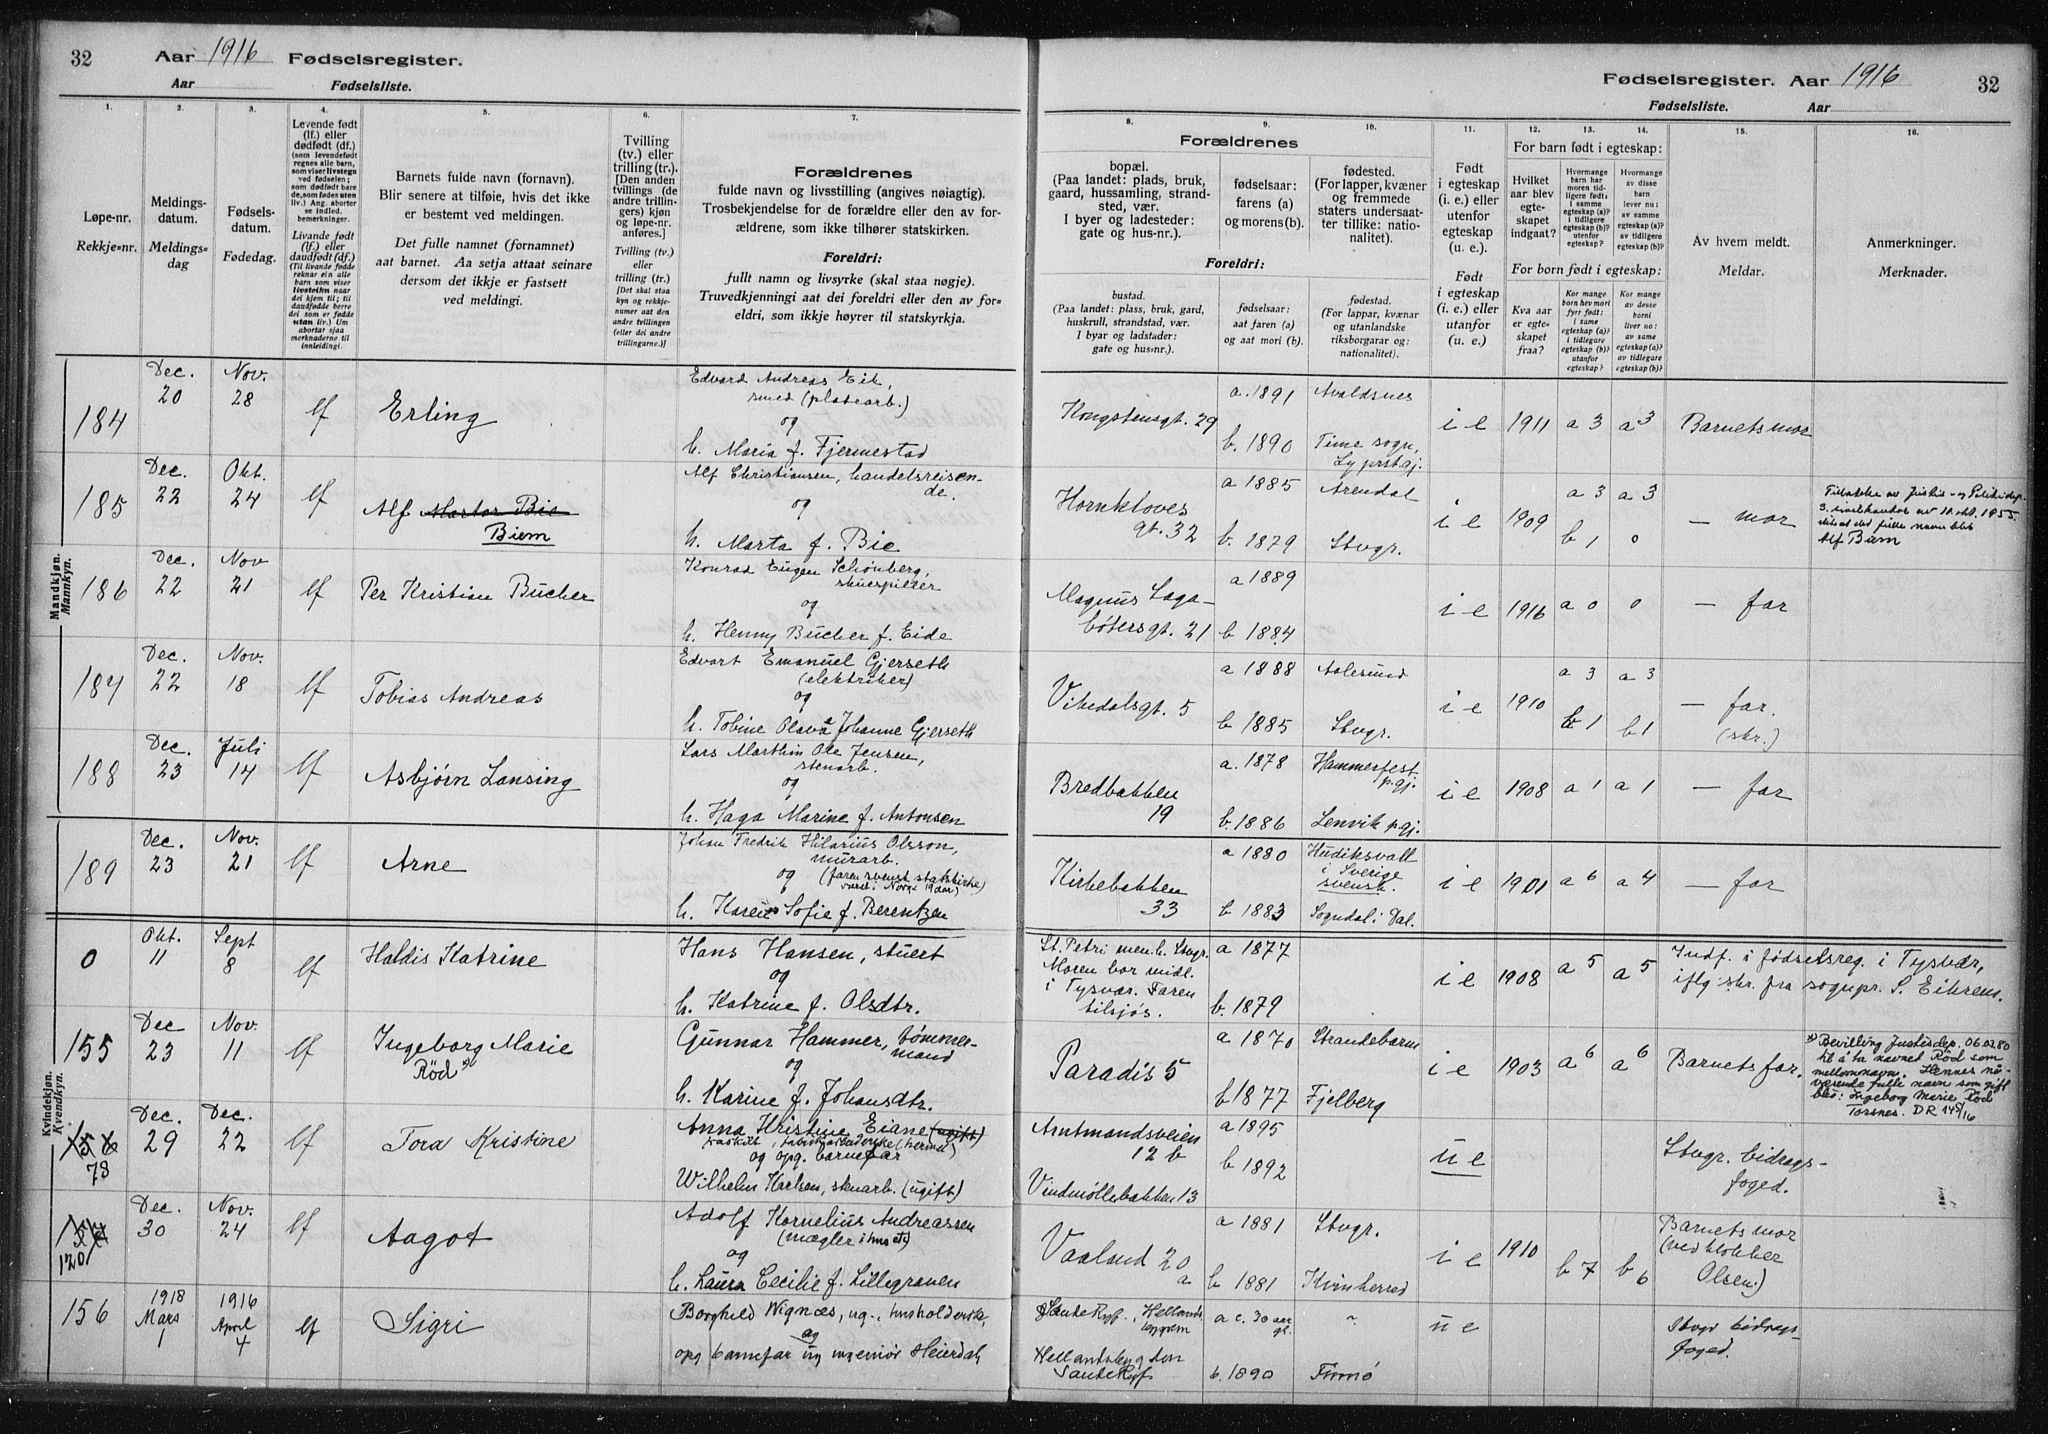 32 Aar 1916 Fødselsregister.
Aar Fødselsliste.
Fødselsregister. Aar 1916 32
Fødselsliste. Aar
1.
Løpe-nr.
Rekkje-nr.
2.
Meldings-
datum.
Meldings-
dag
3.
Fødsels-
datum.
Fødedag.
4.
Levende født
(lf.) eller
dødfødt (df.)
(som levendefødt
regnes alle barn,
som viser livstegn
ved fødselen;
som dødfødt bare
de, som fødes uten
liv.) Ang. aborter
se indled.
bemerkninger.
Livande født
(lf.) eller
daudfødt (df.)
(Til livande fødde
reknar ein alle
born som viser
livsteikn naar
dei kjem til; til
daudfødde berre
dei som er fødde
utan liv.) Um
abortar sjaa
merknaderne til
innleidingi.
5.
Barnets fulde navn (fornavn).
Blir senere at tilføie, hvis det ikke
er bestemt ved meldingen.
Det fulle namnet (fornamnet)
aat barnet. Aa setja attaat seinare
dersom det ikkje er fastsett
ved meldingi.
6.
Tvilling
(tv.) eller
trilling (tr.)
[Den anden
tvillings (de
andre trillin-
gers) kjøn
og løpe-nr.
anføres.]
Tvilling (tv.)
eller
trilling (tr.)
[Det skal staa
kyn og rekkje-
numer aat den
andre tvillingen
(eller dei andre
trillingarne.)]
7.
Forældrenes
fulde navn og livsstilling (angives nøiagtig).
Trosbekjendelse for de forældre eller den av for-
ældrene, som ikke tilhører statskirken.
Foreldri:
fullt namn og livsyrke (skal staa nøgje).
Truvedkjenningi aat dei foreldri eller den av for-
eldri, som ikkje høyrer til statskyrkja.
Forældrenes
8.
bopæl.
(Paa landet: plads, bruk,
gaard, hussamling, strand-
sted, vær.
I byer og ladesteder:
gate og hus-nr.).
9.
fødselsaar:
farens (a)
og morens (b).
10.
fødested.
(For lapper, kvæner
og fremmede
staters undersaat-
ter tillike: natio-
nalitet).
Foreldri:
bustad.
(Paa landet: plass, bruk, gard,
huskrull, strandstad, vær.
I byar og ladstader:
gate og hus-nr.).
fødselsaar:
aat faren (a)
og aat mori (b).
fødestad.
(For lappar, kvænar
og utanlandske
riksborgarar og:
nationalitet).
11.
Født
i egteskap
(i. e.) eller
utenfor
egteskap
(u. e.).
Født
i egteskap
(i. e.) eller
utanfor
(u. e.).
For barn født i egteskap:
12.
Hvilket
aar blev
egte-
skapet
indgaat?
13.
Hvormange
barn har
moren tid-
ligere født:
i samme
egteskap (a)?
i tidligere
egteskap (b)?
utenfor
egteskap?
14.
Hvormange
av disse
barn
lever nu:
av samme
egteskap (a)?
av tidligere
egteskap (b)?
For born født i egteskap:
Kva aar
er egte-
skapet
fraa?
Kor mange
born hev mori
fyrr født:
i same
egteskap (a)?
i tidlegare
egteskap (b)?
utanfor
egteskap?
Kor mange
av desse
borni
liver no:
av same
egteskap (a)?
av tidlegare
egteskap (b)?
15.
Av hvem meldt.
Meldar.
16.
Anmerkninger.
Merknader.
Mandkjøn.
Mannkyn.
184 Dec. 20 Nov. 28 lf Erling
Edvard Andreas Eik,
smed (platearb.)
og
h. Maria f. Fjermestad
Kongstensgt. 29 a. 1891 Avaldsnes
b. 1890 Time sogn,
Ly prstgj.
i e 1911 a 3 a 3 Barnets mor
185 Dec. 22 Okt. 24 lf Alf Martor Bie
Biem
Alf Christiansen, handelsreisen-
de.
og
h. Marta f. Bie
Hornkloves
gt. 32 a 1885 Arendal
b. 1879 Stvgr.
i e 1909 a 3 a 3
b 1 0
— mor
Alf Biem
186 Dec. 22 Nov 21 lf Per Kristian Bucher
Konrad Eugen Schönberg,
skuespiller
og
h. Henny Bucher f. Eide
Magnus Laga-
bøtersgt. 21 a 1889
b 1884
i e 1916 a 0 0 — far
184 Dec. 22 Nov. 18 lf Tobias Andreas
Edvart Emanuel Gjerseth
(elektriker)
og
h. Tobine Olava Johanne Gjerseth
Vikedalsgt. 5 a 1888 Aalesund
b 1885 Stvgr.
i e 1910 a 3 a 3
b 1 b 1
— far.
(skr.)
188 Dec. 23 Juli 14 lf Asbjørn Lansing
Lars Marthin Ole Jensen,
stenarb.
og
h. Haga Marine f. Antonsen
Bredbakken
19 a. 1878 Hammerfest
p.gj.
b. 1886 Lenvik pgj.
i e 1908 a 1 a 1 — far
189 Dec. 23 Nov. 21 lf Arne
Johan Fredrik Hilarius Olsson,
murarb.
og (faren svensk statskirke)
været i Norge 19 aar)
h. Karen Sofie f. Berentzen
Kirkebakken
33 a 1880 Hudiksvall
i Sverige
svensk.
b 1883 Sogndal i Dal.
i e 1901 a 6 a 4 — far
Kvindekjøn.
Kvendkyn.
0 Okt. 11 Sept 8 lf Haldis Katrine
Hans Hansen, stuert
og
h. Katrine f. Olsdtr.
St. Petri men.h. Stvgr.
Moren bor midl.
i Tysvær. Faren
tilsjøs.
a 1877
b. 1879
i e 1908 a 5 a 5
Indf. i fødselsreg. i Tysvær,
iflg skr. fra sognpr. S. Eikrem.
155 Dec 23 Nov. 11 lf Ingeborg Marie
Rød x)
Gunnar Hammer, tømmer-
mand
og
h. Karine f. Johansdtr.
Paradis 5 a 1870 Strandebarm
b 1877 Fjelberg
i e 1903 a 6 a 6 Barnets far.
x) Bevilling Justisdep. 06.03.80
til å ta navnet Rød som
mellomnavn. Hennes nå-
værende fulle navn som gift
ble: Ingeborg Marie Rød
Torsnes. DR 148/16
156
78 Dec. 29 Dec. 22 lf Tora Kristine
Anna Kristine Eiane (ugift)
fraskilt, fabrikarbeiderske (hermet)
og opg. barnefar
Wilhelm Karlsen, skuarb. (ugift)
Amtmandsveien
12 b
Vindmøllebakken 13
a 1895
b 1892
u e
Stvgr. bidrags-
foged.
120 Dec. 30 Nov. 24 lf Aagot
Adolf Kornelius Andreassen
(mægler i hus etc)
og
h. Laura Cecilie f. Lillegraven
Vaaland 20
a
a 1881 Stvgr.
b 1881 Kvinherred
i e 1910 b 7 b 6
Barnets mor
(ved klokker
Olsen.)
156 1918 Mars 1 1916 April 4 lf Sigri
Borghild Wignæs, ug., husholderske,
og
opg barnefar ug ingeniør Heierdal
Sande Ryf., Hellands
byggem
Hellandsbygden
Sande Ryf
a c. 30 aar
gl. "
b. 1890 Finnø
u e
Stvgr bidrags-
foged.